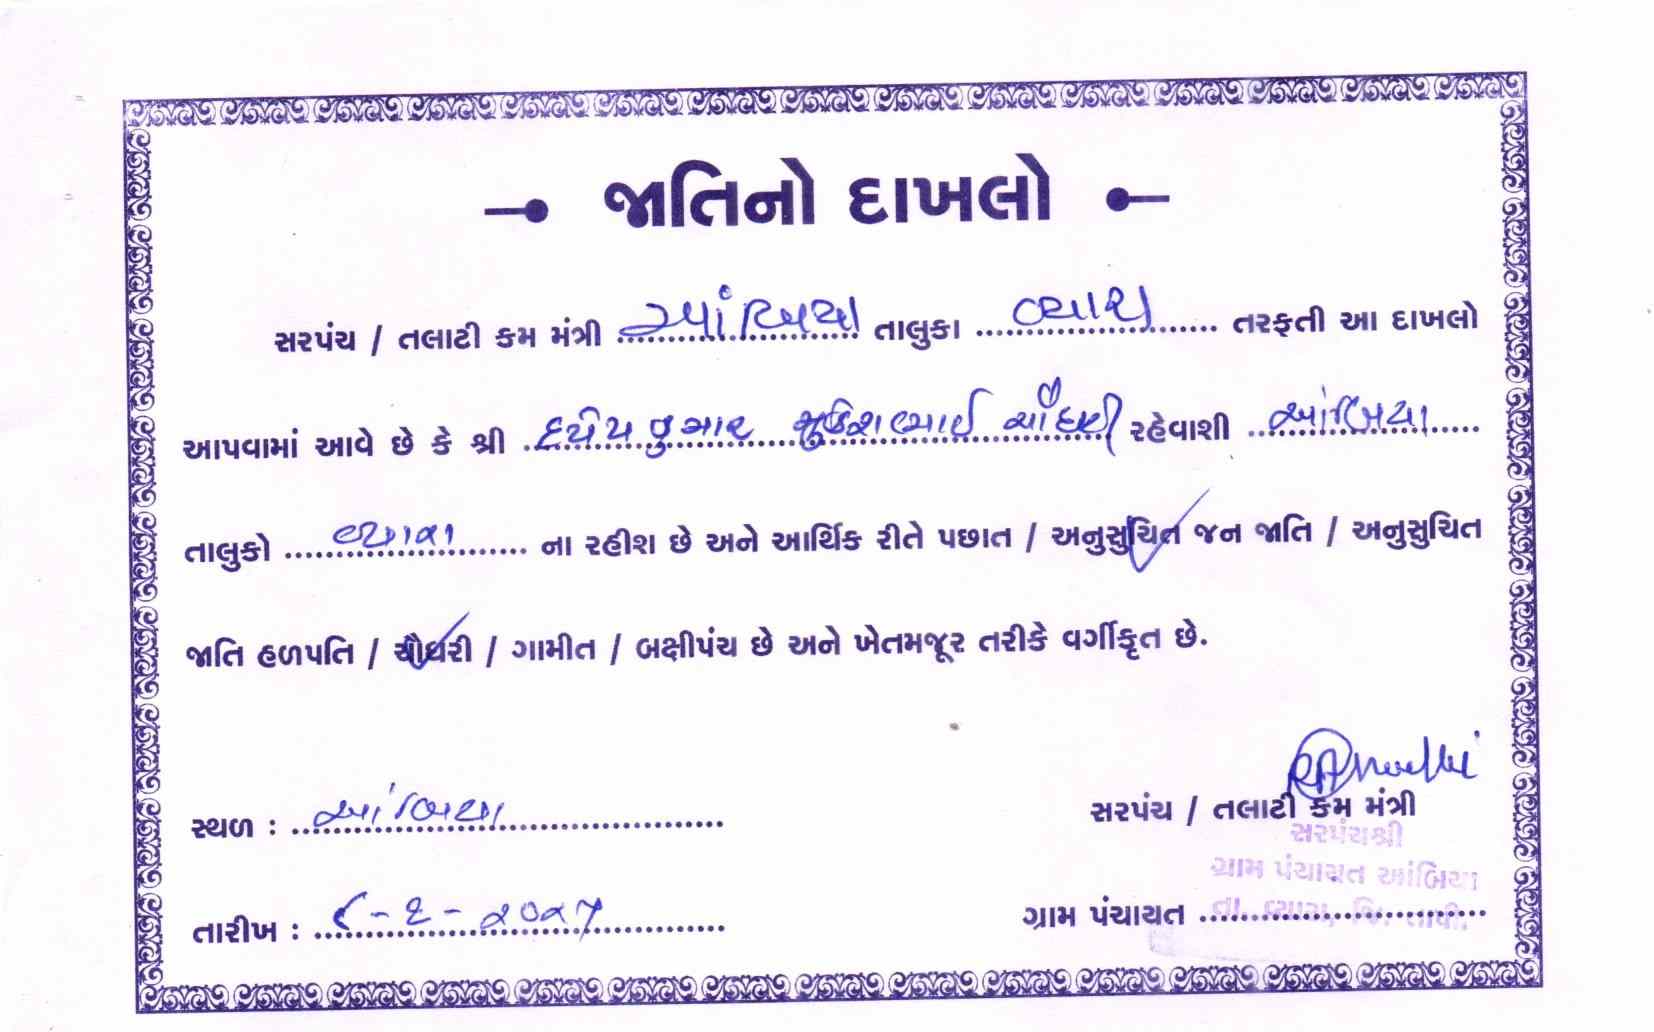 જાતિનો દાખલો
સરપંચ / તલાટી કમ મંત્રી આંબિયા તાલુકા વ્યારા તરફતી આ દાખલો
આપવામાં આવે છે કે શ્રી મુકેશભાઈ ચૌધરી રહેવાશી આંબિયા
તાલુકો વ્યારા ના રહીશ છે અને આર્થિક રીતે પછાત / અનુસુચિત જન જાતિ / અનુસુચિત
જાતિ હળપતિ / ચૌધરી / ગામીત / બક્ષીપંચ છે અને ખેતમજૂર તરીકે વર્ગીકૃત છે.
સ્થળ : આંબિયા
સરપંચ / તલાટી કમ મંત્રી
સરપંચશ્રી
ગ્રામ પંચાયત આંબિયા
તા. વ્યારા, જિ. તાપી.
તારીખ :
ગ્રામ પંચાયત